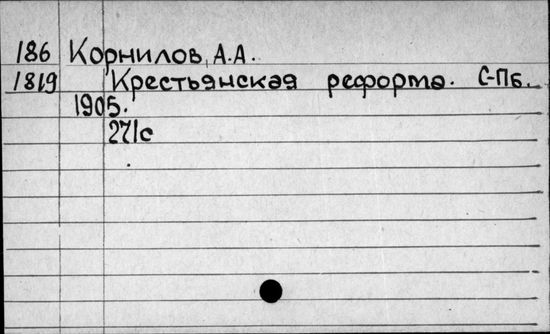 186 Корнилов, А.А.
1819 Крестьянская реформа. С-Пб.
1905.
271с